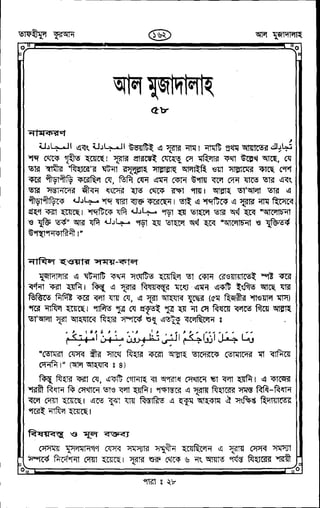 তাফহীমুল কুরআন
১৬২
আল মুজাদালাহ
আল মুজাদালাহ
৫৮
নামকরণ
المجادلة এবং المجادلة উভয়টিই এ সূরার নাম। নামটি প্রথম আয়াতের تجادلك
শব্দ থেকে গৃহীত হয়েছে। সূরার প্রারম্ভেই যেহেতু সে মহিলার কথা উল্লেখ আছে, যে
তার স্বামীর "যিহারে"র ঘটনা রসূলুল্লাহ সাল্লাল্লাহু আলাইহি ওয়া সাল্লামের কাছে পেশ
করে পীড়াপীড়ি করেছিল যে, তিনি যেন এমন কোন উপায় বলে দেন যাতে তার এবং
তার সন্তানদের জীবন ধ্বংসের হাত থেকে রক্ষা পায়। আল্লাহ তা'আলা তার এ
পীড়াপীড়িকে مجادلة শব্দ দ্বারা ব্যক্ত করেছেন। তাই এ শব্দটিকে এ সূরার নাম হিসেবে
গ্রহণ করা হয়েছে। শব্দটিকে যদি مجادلة পড়া হয় তাহলে তার অর্থ হবে "আলোচনা
ও যুক্তি তর্ক" আর যদি مجادلة পড়া হয় তাহলে অর্থ হবে "আলোচনা ও যুক্তিতর্ক
উপস্থাপনকারিনী।"
নাযিল হওয়ার সময়-কাল
মুজাদালার এ ঘটনাটি কখন সংঘটিত হয়েছিল তা কোন রেওয়ায়াতেই স্পষ্ট করে
বর্ণনা করা হয়নি। কিন্তু এ সূরার বিষয়বস্তুর মধ্যে এমন একটি ইংগিত আছে যার
ভিত্তিতে নির্দিষ্ট করে বলা যায় যে, এ সূরা আহযাব যুদ্ধের (৫ম হিজরীর শাওয়াল মাস)
পরে নাযিল হয়েছে। পালিত পুত্র যে প্রকৃতই পুত্র হয় না সে বিষয়ে বলতে গিয়ে আল্লাহ
তা'আলা সূরা আহযাবে যিহার সম্পর্কে শুধু এতটুকু বলেছিলেন ঃ
وَمَا جَعَلَ أَزْوَاجَكُمُ الّٰئِي تُظٰهِرُوْنَ مِنْهُنَّ أُمَّهٰتِكُمْ
"তোমরা যেসব স্ত্রীর সাথে যিহার করো আল্লাহ তাদেরকে তোমাদের মা বানিয়ে
দেননি।" (আল আহযাব ঃ ৪)
কিন্তু যিহার করা যে, একটি গোনাহ বা অপরাধ সেখানে তা বলা হয়নি। এ কাজের
শরয়ী বিধান কি সেখানে তাও বলা হয়নি। পক্ষান্তরে এ সূরায় যিহারের সমস্ত বিধি-বিধান
বলে দেয়া হয়েছে। এতে বুঝা যায় বিস্তারিত এ হুকুম আহকাম ঐ সংক্ষিপ্ত হিদায়াতের
পরেই নাযিল হয়েছে।
বিষয়বস্তু ও মূল বক্তব্য
সেসময় মুসলমানগণ যেসব সমস্যার সম্মুখীন হয়েছিলেন এ সূরায় সেসব সমস্যা
সম্পর্কে নির্দেশনা দেয়া হয়েছে। সূরার শুরু থেকে ৬ নং আয়াত পর্যন্ত যিহারের শরয়ী
পারা ঃ ২৮